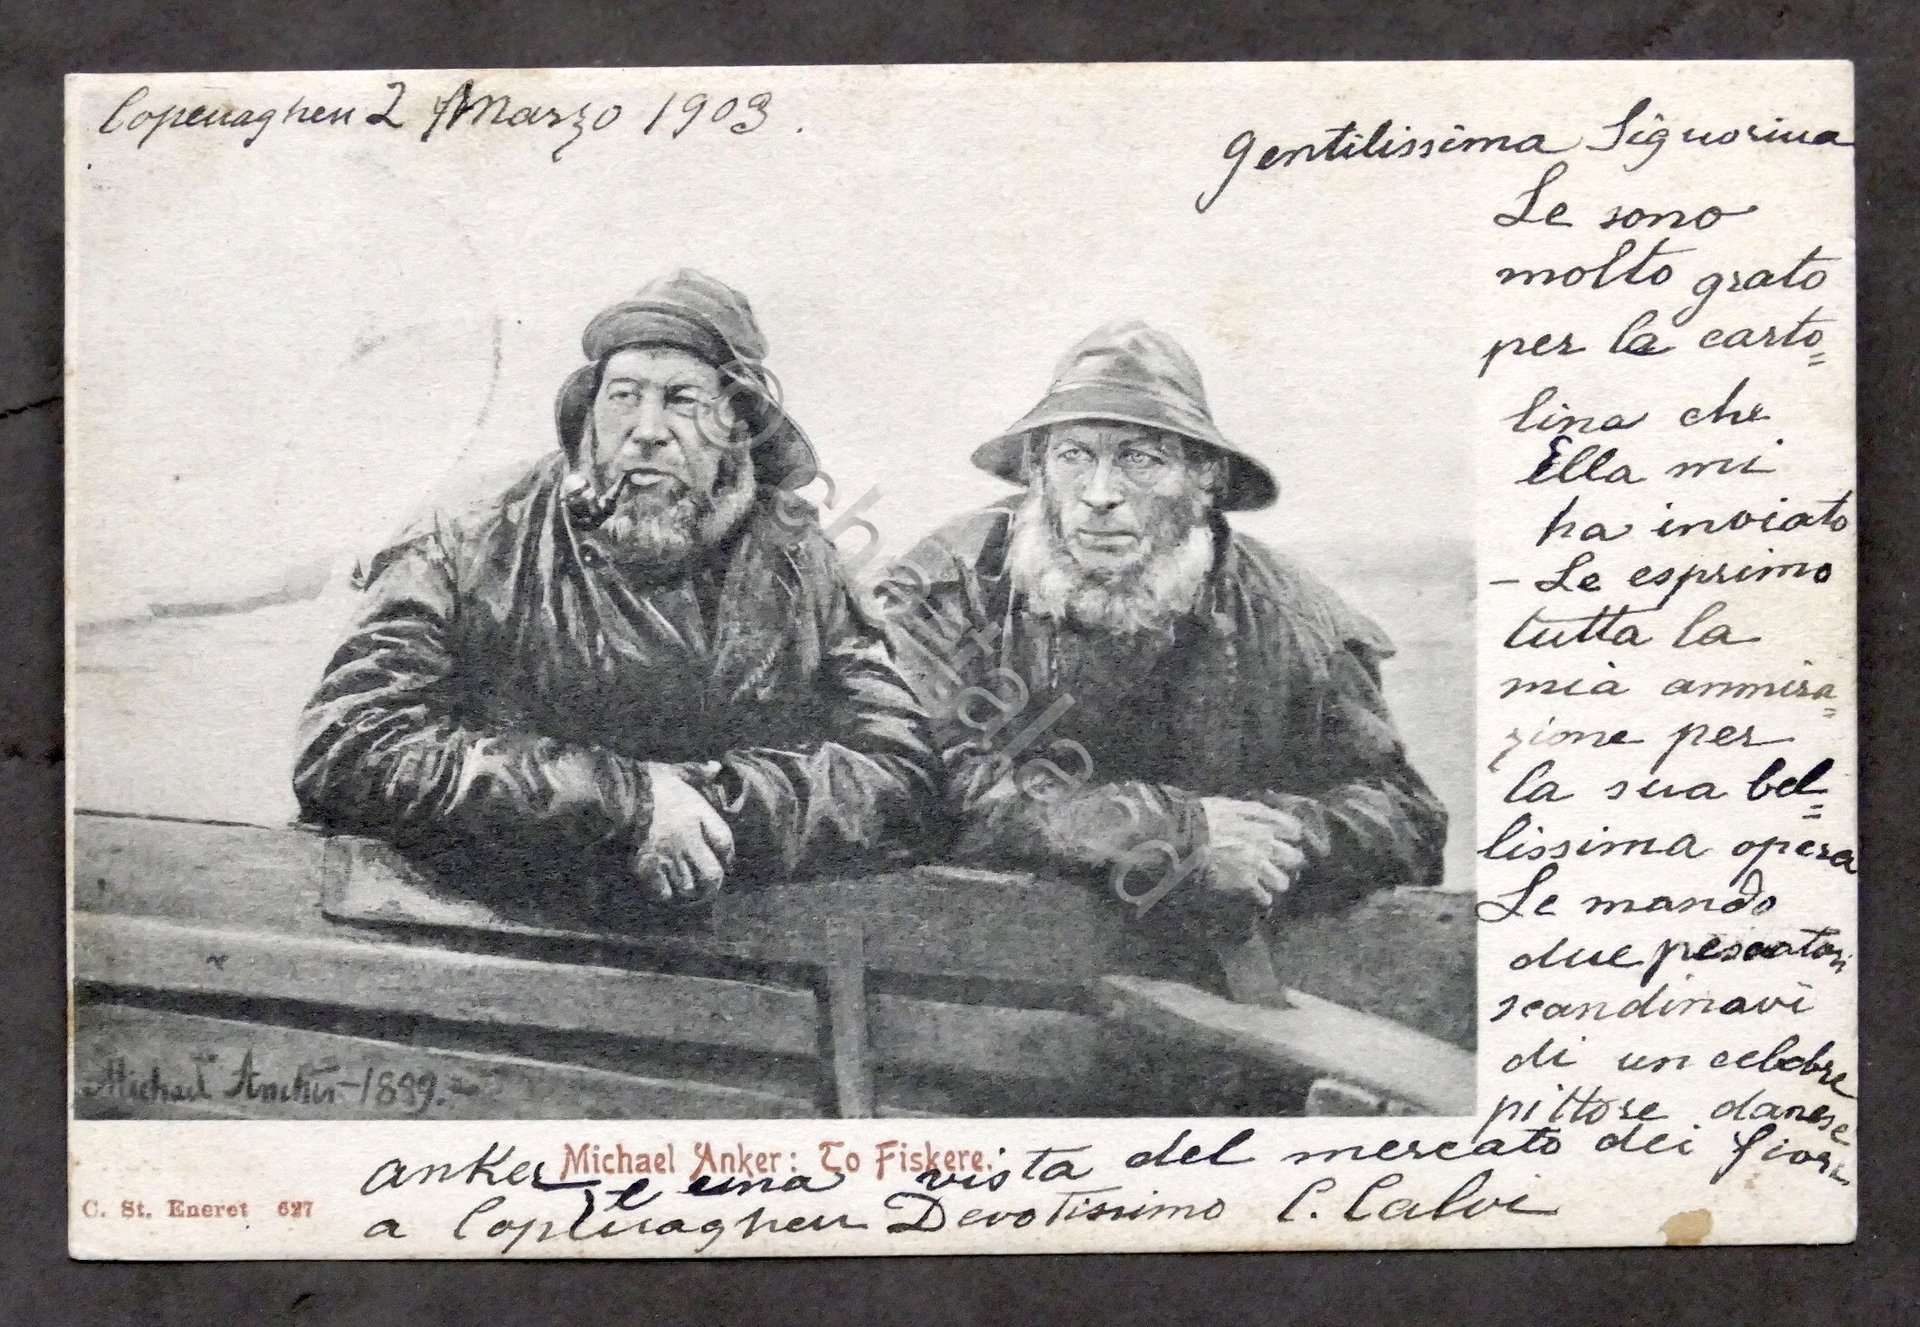 Copenaghen 2 Marzo 1903.
Gentilissima Signorina
Le sono
molto grato
per la carto=
lina che
Ella mi
ha inviato
- Le esprimo
tutta la
mia ammira=
zione per
la sua bel=
lissima opera
Le mando
due pescatori
scandinavi
di un celebre
pittore danese
Anker e una vista del mercato dei fiori
a Copenaghen Devotissimo C. Calvi
Michael Ancher 1889.
Michael Anker: To Fiskere.
C. St. Eneret 627
© chartaland